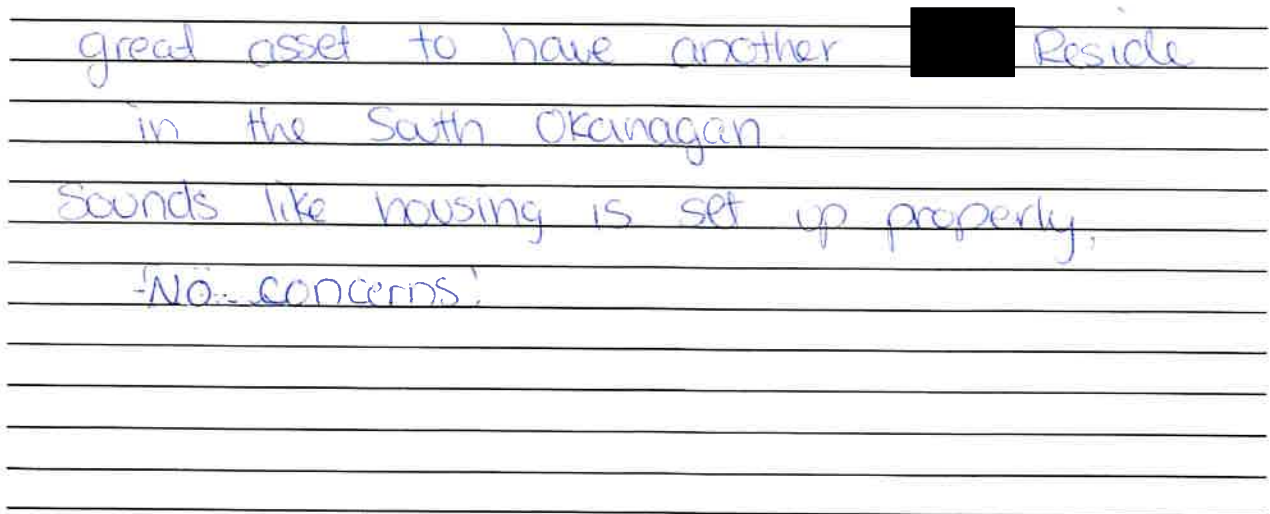 great asset to have another Reside
in the South Okanagan
Sounds like housing is set up properly.
-No concerns!